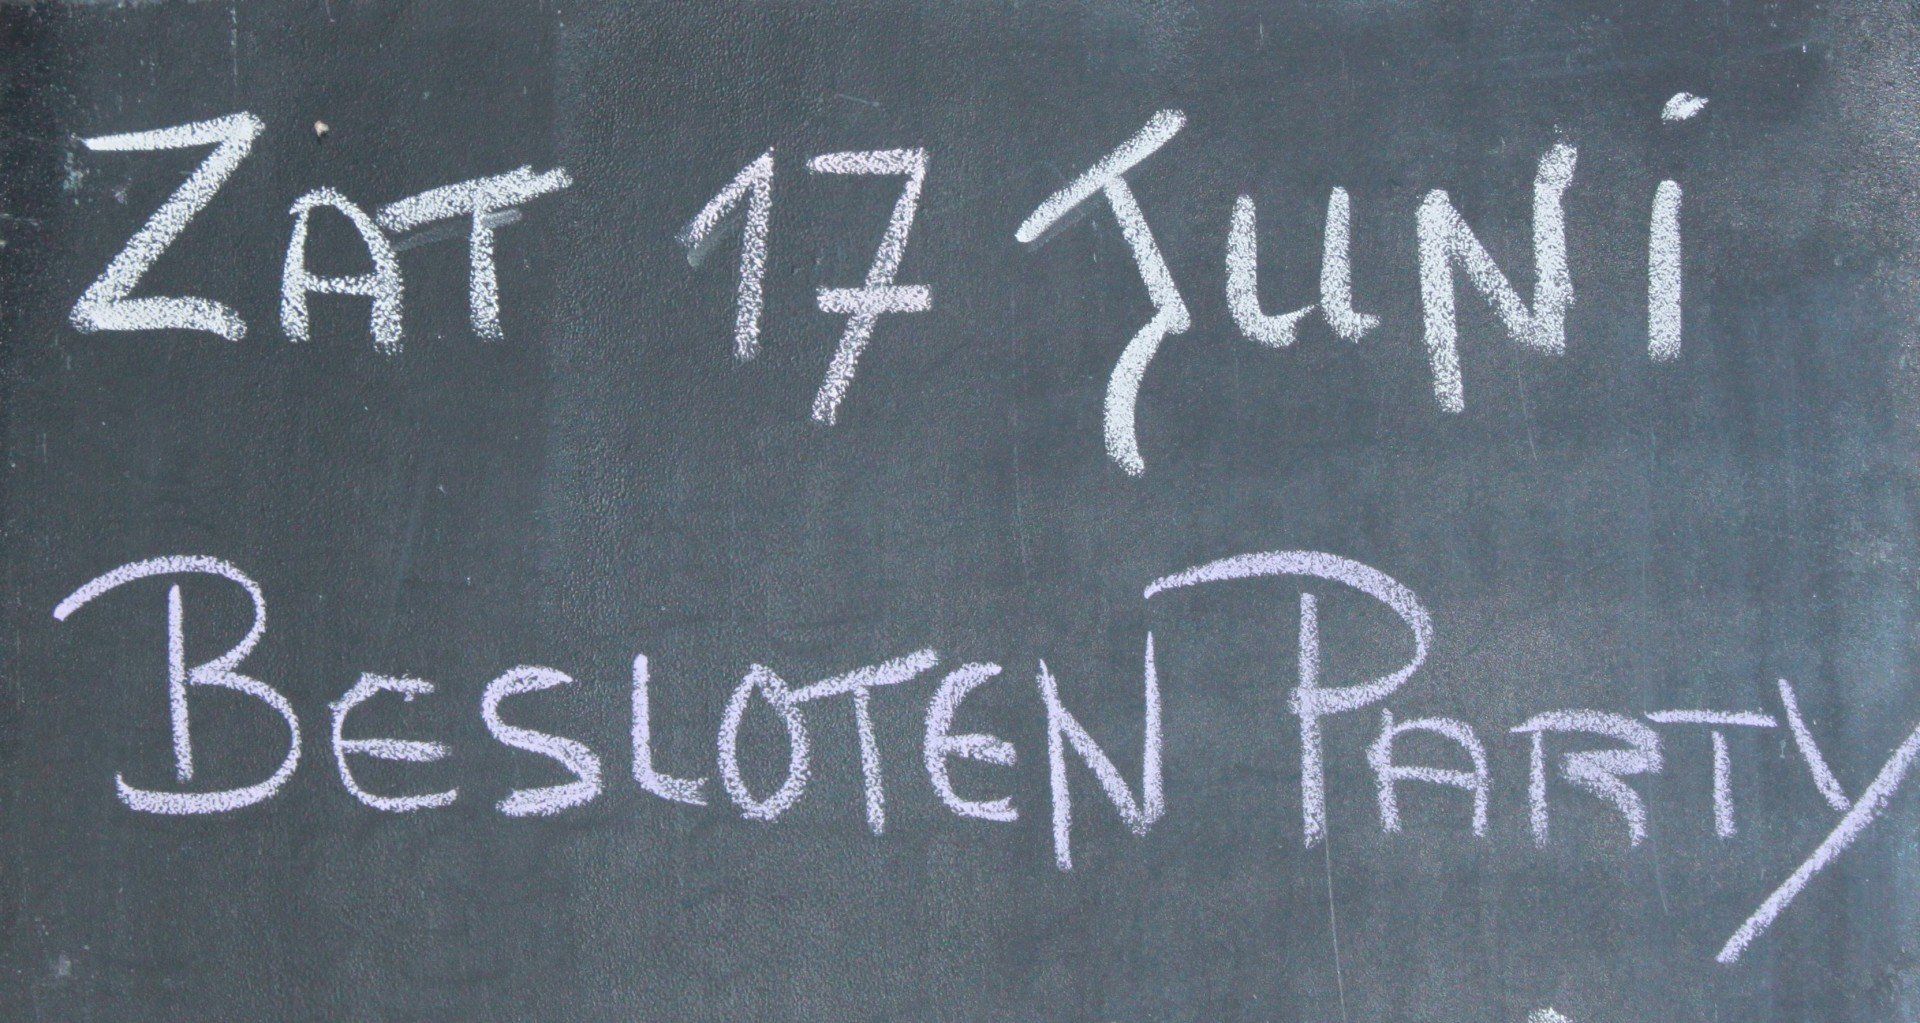 ZAT 17 JUNi
BESLOTEN PARTY